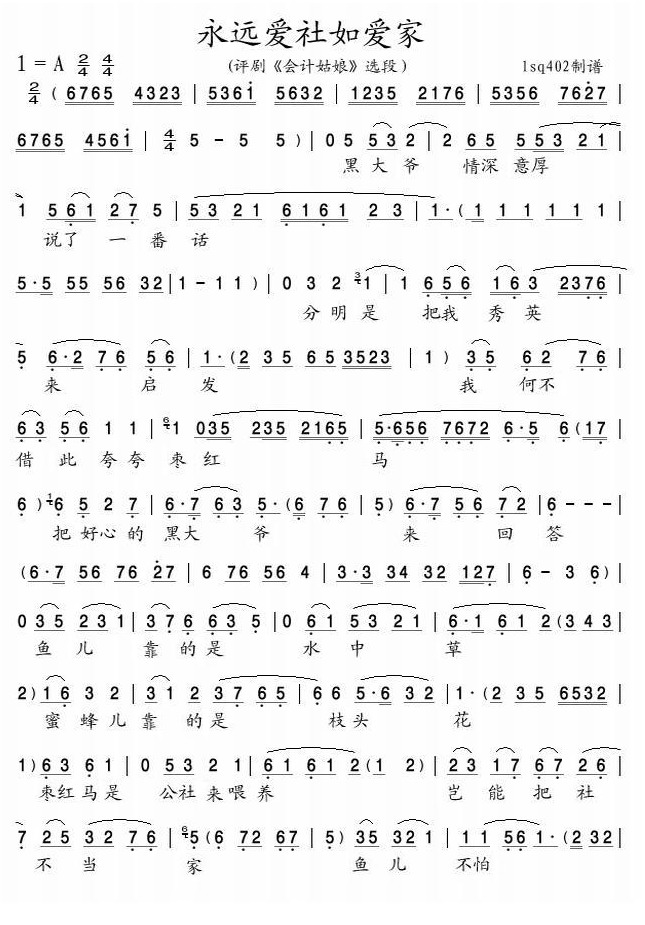 永远爱社如爱家
1=A 2/4 4/4 (评剧《会计姑娘》选段) lsq402制谱
2/4 ( 6765 4323 | 5361 5632 | 1235 2176 | 5356 7627 |
6765 4561 | 4/4 5 - 5 5 ) | 0 5 53 2 | 2 65 553 21 |
黑大爷 情深意厚
1 561 27 5 | 53 21 6161 23 | 1·( 1 1 1 1 1 1 1 |
说了一番话
5·5 55 56 32 | 1 - 1 1 ) | 0 3 2 3 1 | 1 656 163 2376 |
分明是 把我秀英
5 6·2 76 56 | 1·( 2 35 65 3523 | 1 ) 35 62 76 |
来启发 我何不
63 56 1 1 | 6 1 035 235 2165 | 5·656 7672 6·5 6(17 |
借此夸夸枣红 马
6 ) 1 6 5 2 7 | 6·7 63 5·( 6 76 | 5 ) 6·7 56 72 | 6 - - - |
把好心的黑大爷 来回答
( 6·7 56 76 27 | 6 76 56 1 | 3·3 34 32 127 | 6 - 3 6 ) |
0 35 231 | 376 635 | 0 61 53 21 | 6·1 61 2( 343 |
鱼儿靠的是水中草
2 ) 16 3 2 | 31 2 37 65 | 66 5·6 32 | 1·( 2 35 6532 |
蜜蜂儿靠的是枝头花
1 ) 63 61 | 0 53 21 | 6161 2( 1 2 ) | 23 17 67 65 |
枣红马是公社来喂养 岂能把社
7 25 32 76 | 6 5( 6 72 67 | 5 ) 35 321 | 1 1 56 1·( 2 32 |
不当家 鱼儿不怕